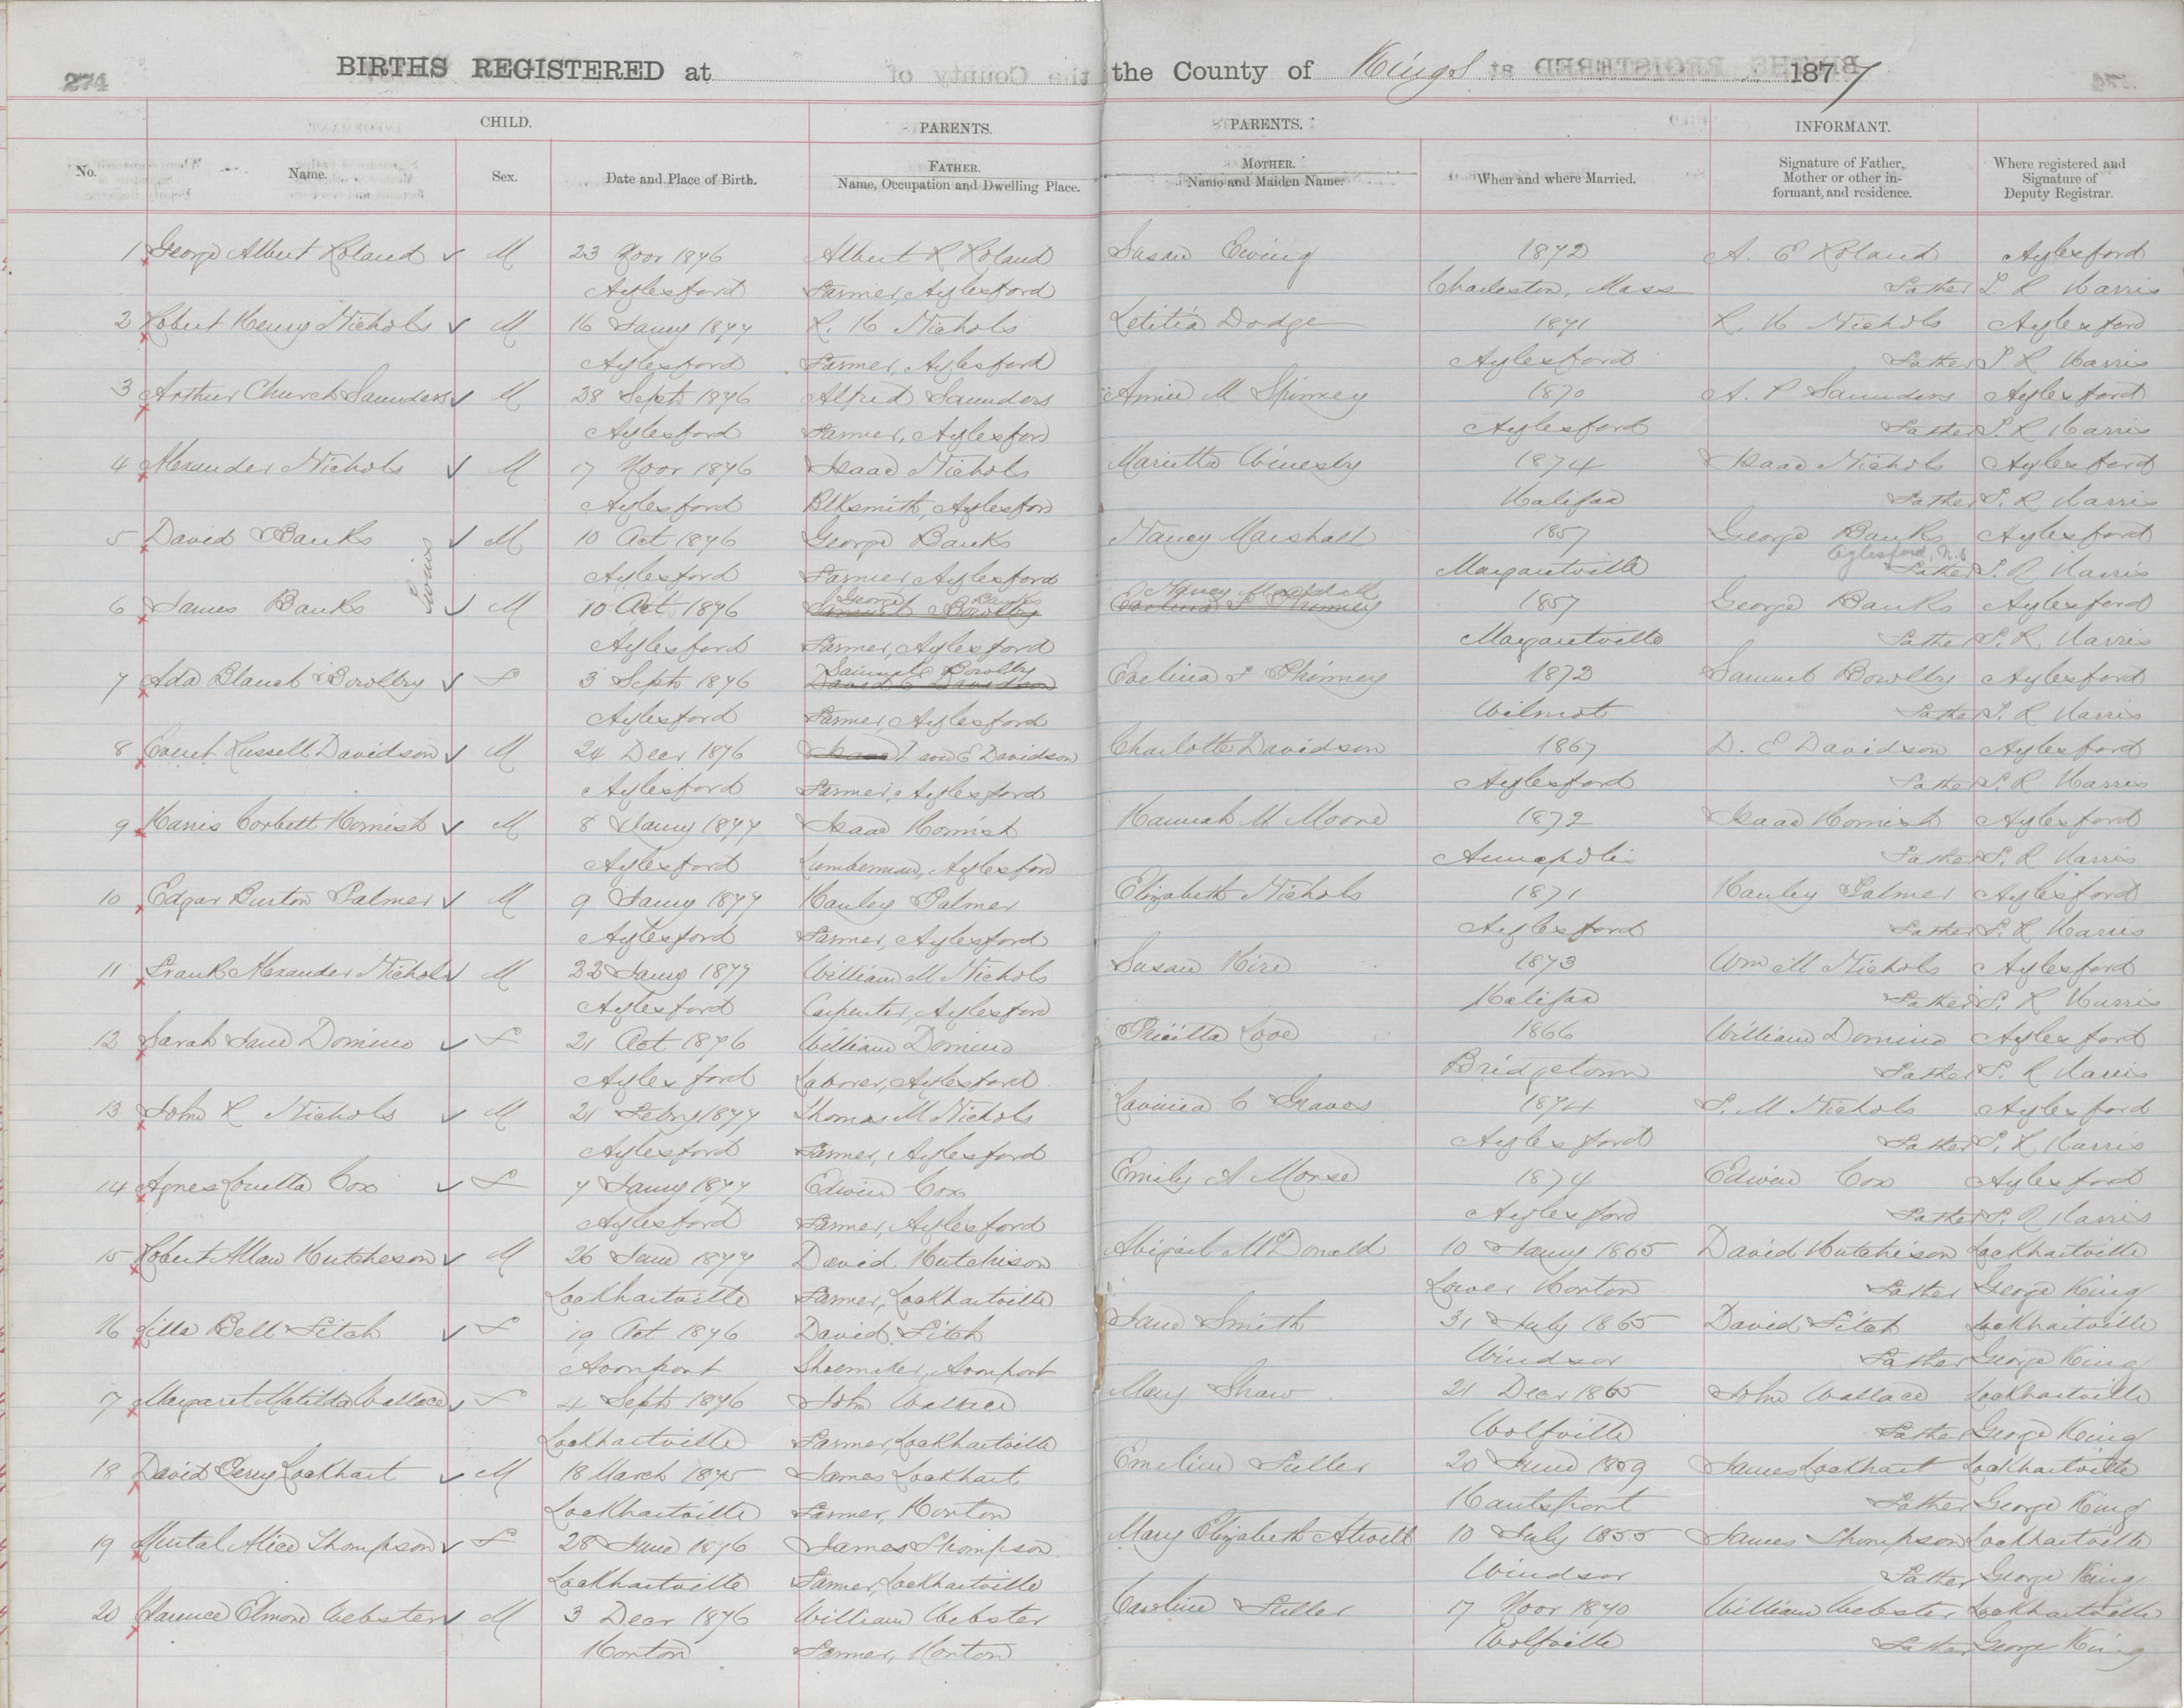 274
BIRTHS REGISTERED at the County of Kings 1877
CHILD. PARENTS. PARENTS. INFORMANT.
No. Name. Sex. Date and Place of Birth. FATHER. Name, Occupation and Dwelling Place. MOTHER. Name and Maiden Name. When and where Married. Signature of Father, Mother or other informant, and residence. Where registered and Signature of Deputy Registrar.
1 George Albert Roland ✓ M 23 Novr 1876 Albert R Roland Susan Ewing 1872 A. E Roland Aylesford
Aylesford Farmer, Aylesford Charleston, Mass Father S. R Harris
2 Robert Henry Nichols ✓ M 16 Jany 1877 R. H Nichols Letitia Dodge 1871 R. H Nichols Aylesford
Aylesford Farmer, Aylesford Aylesford Father S R Harris
3 Arthur Church Saunders ✓ M 28 Sept 1876 Alfred Saunders Annie M Spinney 1870 A. P Saunders Aylesford
Aylesford Farmer, Aylesford Aylesford Father S. R Harris
4 Alexander Nichols ✓ M 17 Novr 1876 Isaac Nichols Marietta 1874 Isaac Nichols Aylesford
Aylesford Blksmith, Aylesford Halifax Father S. R Harris
5 David Banks ✓ M 10 Oct 1876 George Banks Nancy Marshall 1857 George Banks Aylesford
Twins
Aylesford, N.S
Aylesford Farmer Aylesford Margaretville Father S. R Harris
George Banks Nancy Marshall
6 James Banks ✓ M 10 Oct 1876 Samuel Bowlby Evelina S Phinney 1857 George Banks Aylesford
Aylesford Farmer, Aylesford Margaretville Father S. R. Harris
Samuel Bowlby
7 Ada Blanch Bowlby ✓ F 3 Sept 1876 David E Davidson Evelina S Phinney 1872 Samuel Bowlby Aylesford
Aylesford Farmer, Aylesford Wilmot Father S. R Harris
8 Everet Russell Davidson ✓ M 24 Decr 1876 Isaac David E Davidson Charlotte Davidson 1867 D. E Davidson Aylesford
Aylesford Farmer, Aylesford Aylesford Father S. R Harris
9 Harris Corbett Hornish ✓ M 8 Jany 1877 Isaac Hornish Hannah M Moore 1872 Isaac Hornish Aylesford
Aylesford Lumberman, Aylesford Annapolis Father S. R Harris
10 Edgar Burton Palmer ✓ M 9 Jany 1877 Hanley Palmer Elizabeth Nichols 1871 Hanley Palmer Aylesford
Aylesford Farmer, Aylesford Aylesford Father S. R Harris
11 Frank Alexander Nichols ✓ M 22 Jany 1877 William M Nichols Susan 1873 Wm M Nichols Aylesford
Aylesford Carpenter, Aylesford Halifax Father S. R Harris
12 Sarah Jane Domino ✓ F 21 Oct 1876 William Domino Love 1866 William Domino Aylesford
Aylesford Laborer, Aylesford Bridgetown Father S. R Harris
13 John R Nichols ✓ M 21 Febry 1877 Thomas M Nichols Lavinia C Graves 1874 T. M Nichols Aylesford
Aylesford Farmer, Aylesford Aylesford Father S. R Harris
14 Agnes Louella Cox ✓ F 7 Jany 1877 Edwin Cox Emily A Morse 1874 Edwin Cox Aylesford
Aylesford Farmer, Aylesford Aylesford Father S. R Harris
15 Robert Allan Hutcheson ✓ M 26 June 1877 David Hutchison Abigail McDonald 10 Jany 1865 David Hutchison Lockhartville
Lockhartville Farmer, Lockhartville Lower Horton Father George King
16 Lilla Bell Fitch ✓ F 19 Oct 1876 David Fitch Jane Smith 31 July 1865 David Fitch Lockhartville
Avonport Shoemaker, Avonport Windsor Father George King
17 Margaret Matilda Wallace ✓ F 4 Sept 1876 John Wallace Mary Shaw 21 Decr 1865 John Wallace Lockhartville
Lockhartville Farmer, Lockhartville Wolfville Father George King
18 David Perry Lockhart ✓ M 18 March 1875 James Lockhart Emeline Fuller 20 June 1859 James Lockhart Lockhartville
Lockhartville Farmer, Horton Hantsport Father George King
19 Mertal Alice Thompson ✓ F 28 June 1876 James Thompson Mary Elizabeth Atwell 10 July 1855 James Thompson Lockhartville
Lockhartville Farmer, Lockhartville Windsor Father George King
20 Clarence Elmore Webster ✓ M 3 Decr 1876 William Webster Caroline Fuller 17 Novr 1870 William Webster Lockhartville
Horton Farmer, Horton Wolfville Father George King